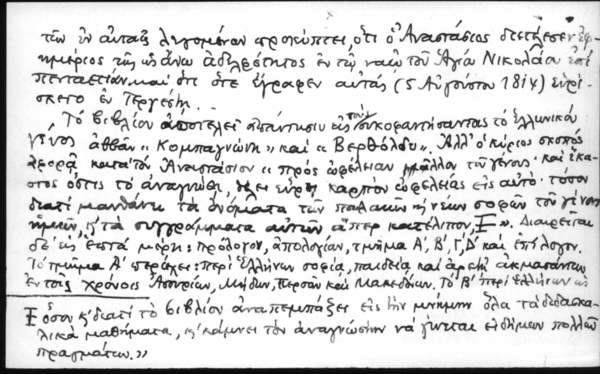 τῶν ἐν αὐταῖς λεγομένων προκύπτει, ὅτι ὁ Ἀναστάσιος διετέλεσεν ἐφ-
ημέριος τῆς ὡς ἄνω ἀδελφότητος ἐν τῷ ναῷ τοῦ Ἁγίου Νικολάου ἐπὶ
πενταετίαν καὶ ὅτι ὅτε ἔγραφεν αὐτάς (5 Αὐγούστου 1814) εὑρί-
σκετο ἐν Τεργέστῃ.
Τὸ βιβλίον ἀποτελεῖ ἀπάντησιν εἰς τοὺς συκοφαντήσαντας τὸ Ἑλληνικὸν
γένος ἀββᾶν "Κομπαγνώνη" καὶ "Βερθόλδον". Ἀλλ' ὁ κύριος σκοπὸς
ἀφορᾷ κατὰ τὸν Ἀναστάσιον "πρὸς ὠφέλειαν μᾶλλον τοῦ γένους· καὶ ἕκα-
στος ὅστις τὸ ἀναγνώσῃ, θέλει εὕρῃ καρπὸν ὠφελείας εἰς αὐτό· τόσον
διατὶ μανθάνει τὰ ὀνόματα τῶν παλαιῶν κ' νέων σοφῶν τοῦ γένους
ἡμῶν, κ' τὰ συγγράμματα αὐτῶν ἅπερ κατέλιπον, ". Διαιρεῖται
δὲ εἰς ἑπτὰ μέρη: πρόλογον, ἀπολογίαν, τμῆμα Α', Β', Γ', Δ' καὶ ἐπίλογον.
Τὸ τμῆμα Α' περιέχει: περὶ Ἑλλήνων σοφία, παιδεία καὶ ἀρετῇ ἀκμασάντων
ἐν τοῖς χρόνοις Ἀσσυρίων, Μήδων, Περσῶν καὶ Μακεδόνων. Τὸ Β' περὶ Ἑλλήνων
ὅσον κ' διατὶ τὸ βιβλίον ἀναπεμπάζει εἰς τὴν μνήμην ὅλα τὰ διδασκα-
λικὰ μαθήματα, κ' κάμνει τὸν ἀναγνώστην νὰ γίνεται εἰδήμων πολλῶν
πραγμάτων."